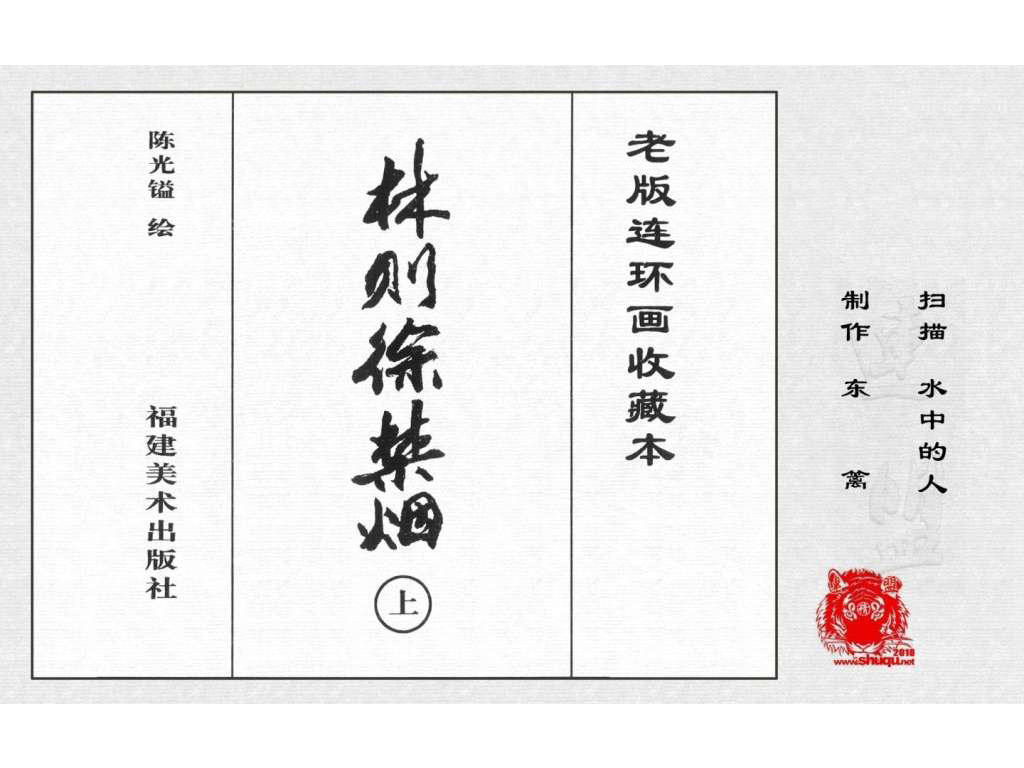 扫描 水中的人
制作 东 篱
老版连环画收藏本
林则徐禁烟
上
陈光镒 绘
福建美术出版社
2010
www.shuqu.net